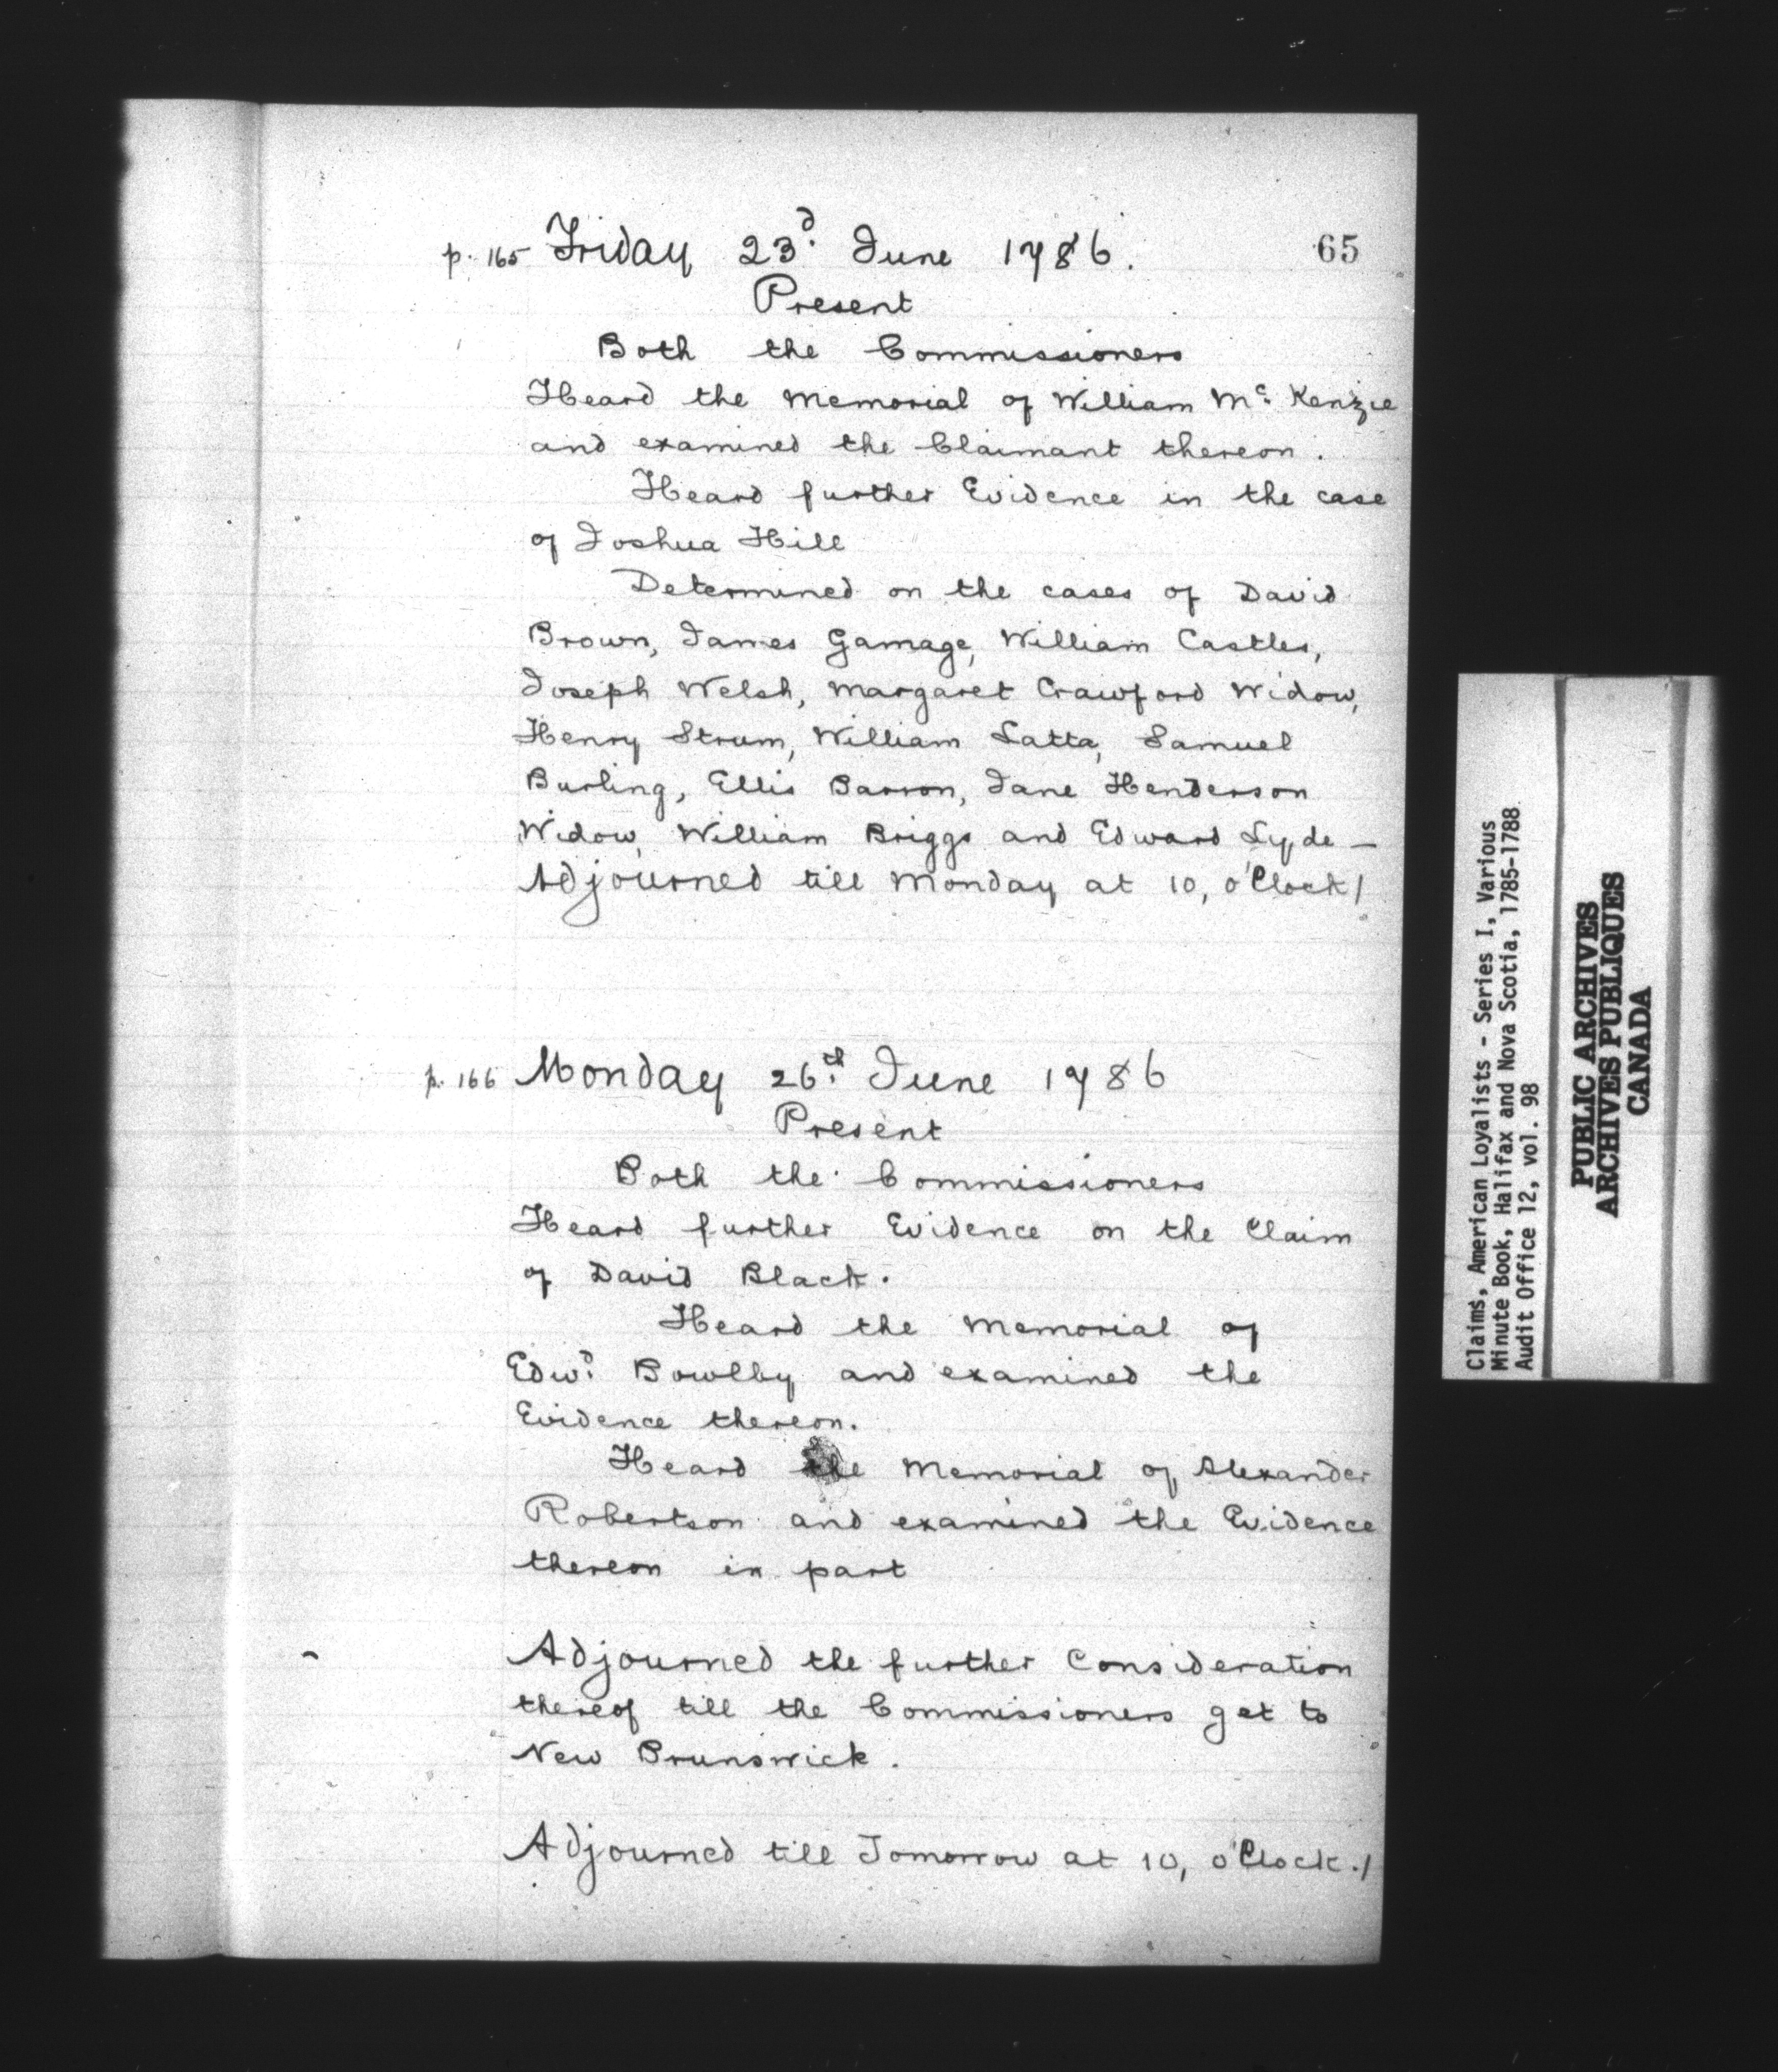 65
p. 165 Friday 23d. June 1786.
Present
Both the Commissioners
Heard the Memorial of William Mc. Kenzie
and examined the Claimant thereon.
Heard further Evidence in the case
of Joshua Hill
Determined on the cases of David
Brown, James Gamage, William Castles,
Joseph Welsh, Margaret Crawford Widow,
Henry Strum, William Latta, Samuel
Burling, Ellis Barron, Jane Henderson
Widow, William Briggs and Edward Lyde —
Adjourned till Monday at 10, o'Clock/
p. 166 Monday 26th. June 1786
Present
Both the Commissioners
Heard further Evidence on the Claim
of David Black.
Heard the Memorial of
Edwd. Bowlby and examined the
Evidence thereon.
Heard the Memorial of Alexander
Robertson and examined the Evidence
thereon in part
Adjourned the further Consideration
thereof till the Commissioners get to
New Brunswick.
Adjourned till Tomorrow at 10, o'Clock./
Claims, American Loyalists - Series I, Various
Minute Book, Halifax and Nova Scotia, 1785-1788
Audit Office 12, vol. 98
PUBLIC ARCHIVES
ARCHIVES PUBLIQUES
CANADA